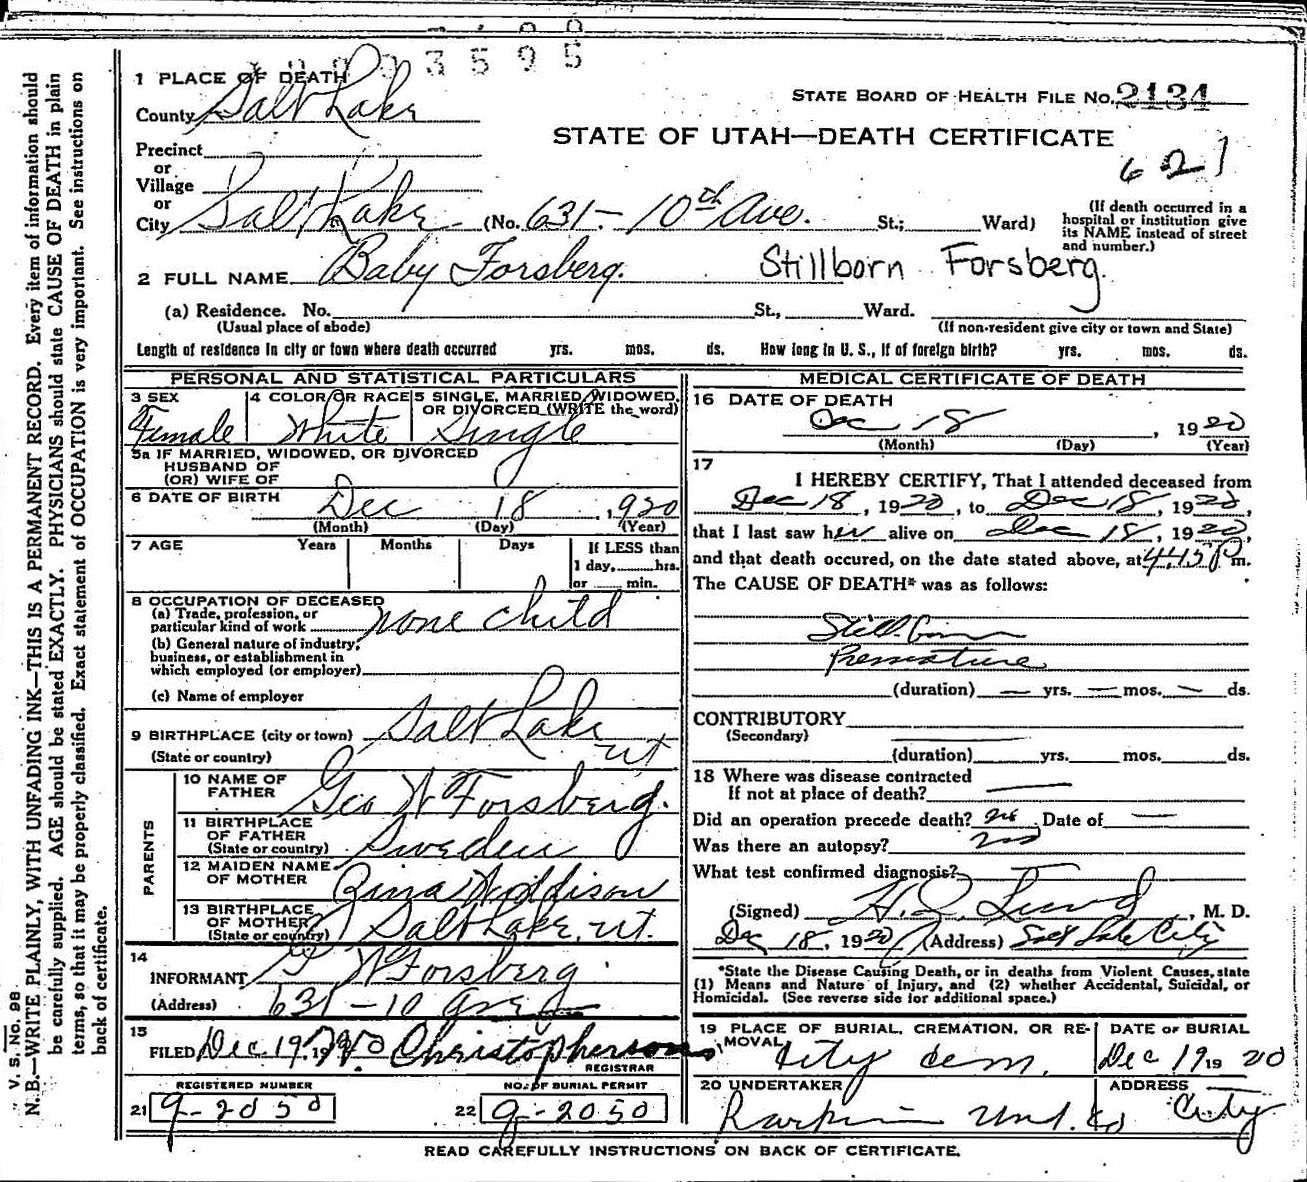 3595
1 PLACE OF DEATH
STATE BOARD OF HEALTH FILE NO. 2134
County Salt Lake
STATE OF UTAH—DEATH CERTIFICATE
621
Precinct
or
Village
or
City Salt Lake (No. 631 - 10th Ave. St.; Ward)
(If death occurred in a
hospital or institution give
its NAME instead of street
and number.)
2 FULL NAME Baby Forsberg. Stillborn Forsberg.
(a) Residence. No. St., Ward.
(Usual place of abode) (If non-resident give city or town and State)
Length of residence in city or town where death occurred yrs. mos. ds. How long in U. S., if of foreign birth? yrs. mos. ds.
PERSONAL AND STATISTICAL PARTICULARS
3 SEX 4 COLOR OR RACE 5 SINGLE, MARRIED, WIDOWED,
OR DIVORCED (WRITE the word)
Female White Single
5a IF MARRIED, WIDOWED, OR DIVORCED
HUSBAND OF
(OR) WIFE OF
6 DATE OF BIRTH Dec 18, 1920
(Month) (Day) (Year)
7 AGE Years Months Days If LESS than
1 day, hrs.
or min.
8 OCCUPATION OF DECEASED
(a) Trade, profession, or
particular kind of work none child
(b) General nature of industry,
business, or establishment in
which employed (or employer)
(c) Name of employer
9 BIRTHPLACE (city or town) Salt Lake
(State or country) Ut
PARENTS
10 NAME OF
FATHER Geo W Forsberg.
11 BIRTHPLACE
OF FATHER
(State or country) Sweden
12 MAIDEN NAME
OF MOTHER
13 BIRTHPLACE
OF MOTHER
(State or country) Salt Lake, Ut.
14
INFORMANT G W Forsberg
(Address) 631 - 10 Ave
15
FILED Dec 19, 19 Christopherson
REGISTRAR
REGISTERED NUMBER NO. OF BURIAL PERMIT
21 9-2050 22 9-2050
MEDICAL CERTIFICATE OF DEATH
16 DATE OF DEATH
Dec 18, 1920
(Month) (Day) (Year)
17
I HEREBY CERTIFY, That I attended deceased from
Dec 18, 1920, to Dec 18, 1920,
that I last saw her alive on Dec 18, 1920,
and that death occured, on the date stated above, at 4.45 P m.
The CAUSE OF DEATH* was as follows:
Stillborn
Premature
(duration) — yrs. — mos. — ds.
CONTRIBUTORY
(Secondary)
(duration) yrs. mos. ds.
18 Where was disease contracted
If not at place of death? —
Did an operation precede death? no Date of —
Was there an autopsy? no
What test confirmed diagnosis?
(Signed) , M. D.
Dec 18, 1920 (Address) Salt Lake City
*State the Disease Causing Death, or in deaths from Violent Causes, state
(1) Means and Nature of Injury, and (2) whether Accidental, Suicidal, or
Homicidal. (See reverse side for additional space.)
19 PLACE OF BURIAL, CREMATION, OR RE-
MOVAL City Cem.
DATE OF BURIAL
Dec 19 1920
20 UNDERTAKER Und. Co
ADDRESS
City
READ CAREFULLY INSTRUCTIONS ON BACK OF CERTIFICATE.
V. S. NO. 98
N. B.—WRITE PLAINLY, WITH UNFADING INK—THIS IS A PERMANENT RECORD. Every item of information should
be carefully supplied. AGE should be stated EXACTLY. PHYSICIANS should state CAUSE OF DEATH in plain
terms, so that it may be properly classified. Exact statement of OCCUPATION is very important. See instructions on
back of certificate.